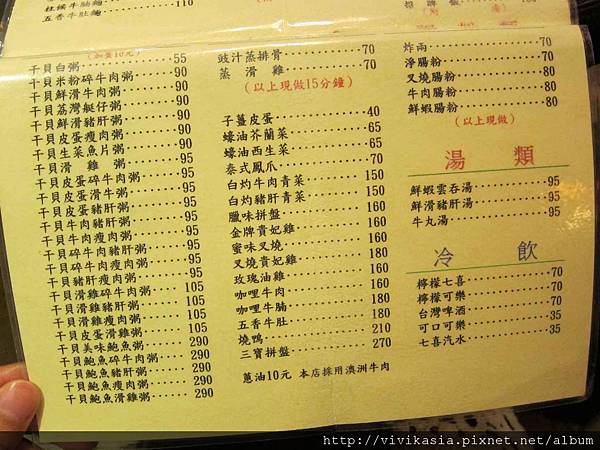 柱候牛腩麵
五香牛肚麵‧‧‧‧‧‧110
(加蛋10元)
干貝白粥‧‧‧‧‧‧55
干貝米粉碎牛肉粥‧‧‧‧‧‧90
干貝鮮滑牛肉粥‧‧‧‧‧‧90
干貝荔灣艇仔粥‧‧‧‧‧‧90
干貝鮮滑豬肝粥‧‧‧‧‧‧90
干貝皮蛋瘦肉粥‧‧‧‧‧‧90
干貝生菜魚片粥‧‧‧‧‧‧90
干貝滑 雞 粥‧‧‧‧‧‧95
干貝皮蛋碎牛肉粥‧‧‧‧‧‧95
干貝皮蛋滑牛粥‧‧‧‧‧‧95
干貝皮蛋豬肝粥‧‧‧‧‧‧95
干貝牛肉豬肝粥‧‧‧‧‧‧95
干貝牛肉瘦肉粥‧‧‧‧‧‧95
干貝碎牛豬肝粥‧‧‧‧‧‧95
干貝碎牛瘦肉粥‧‧‧‧‧‧95
干貝豬肝瘦肉粥‧‧‧‧‧‧95
干貝滑雞碎牛肉粥‧‧‧‧‧‧105
干貝滑雞豬肝粥‧‧‧‧‧‧105
干貝滑雞瘦肉粥‧‧‧‧‧‧105
干貝皮蛋滑雞粥‧‧‧‧‧‧105
干貝美味鮑魚粥‧‧‧‧‧‧290
干貝鮑魚碎牛肉粥‧‧‧‧‧‧290
干貝鮑魚豬肝粥‧‧‧‧‧‧290
干貝鮑魚瘦肉粥‧‧‧‧‧‧290
干貝鮑魚滑雞粥‧‧‧‧‧‧290
豉汁蒸排骨‧‧‧‧‧‧70
蒸 滑 雞‧‧‧‧‧‧70
(以上現做15分鐘)
子薑皮蛋‧‧‧‧‧‧40
蠔油芥蘭菜‧‧‧‧‧‧65
蠔油西生菜‧‧‧‧‧‧65
泰式鳳爪‧‧‧‧‧‧70
白灼牛肉青菜‧‧‧‧‧‧150
白灼豬肝青菜‧‧‧‧‧‧150
臘味拼盤‧‧‧‧‧‧160
金牌貴妃雞‧‧‧‧‧‧160
蜜味叉燒‧‧‧‧‧‧160
叉燒貴妃雞‧‧‧‧‧‧180
玫瑰油雞‧‧‧‧‧‧160
咖哩牛肉‧‧‧‧‧‧160
咖哩牛腩‧‧‧‧‧‧180
五香牛肚‧‧‧‧‧‧180
燒鴨‧‧‧‧‧‧210
三寶拼盤‧‧‧‧‧‧270
蔥油10元 本店採用澳洲牛肉
炸兩‧‧‧‧‧‧70
淨腸粉‧‧‧‧‧‧60
叉燒腸粉‧‧‧‧‧‧80
牛肉腸粉‧‧‧‧‧‧80
鮮蝦腸粉‧‧‧‧‧‧80
(以上現做)
湯 類
鮮蝦雲吞湯‧‧‧‧‧‧95
鮮滑豬肝湯‧‧‧‧‧‧95
牛丸湯‧‧‧‧‧‧95
冷 飲
檸檬七喜‧‧‧‧‧‧70
檸檬可樂‧‧‧‧‧‧70
台灣啤酒‧‧‧‧‧‧70
可口可樂‧‧‧‧‧‧35
七喜汽水‧‧‧‧‧‧35
http://vivikasia.pixnet.net/album